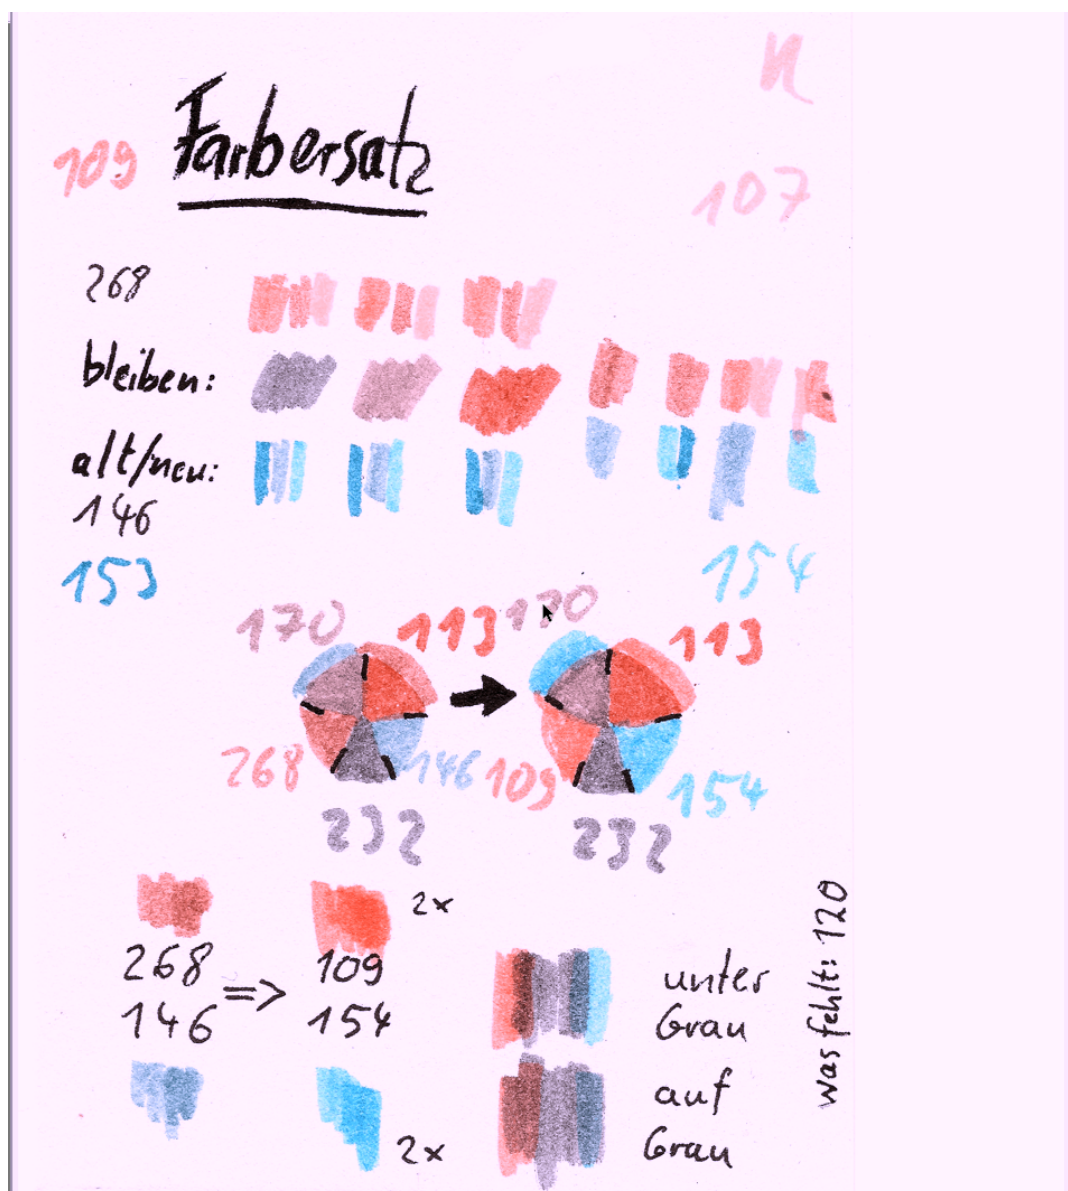 n
109 Farbersatz
107
268
bleiben:
alt/neu:
146
153
154
170 113 170 113
268 146 109 154
232 232
2x
268 => 109
146 154
unter
Grau
auf
Grau
2x
was fehlt: 120